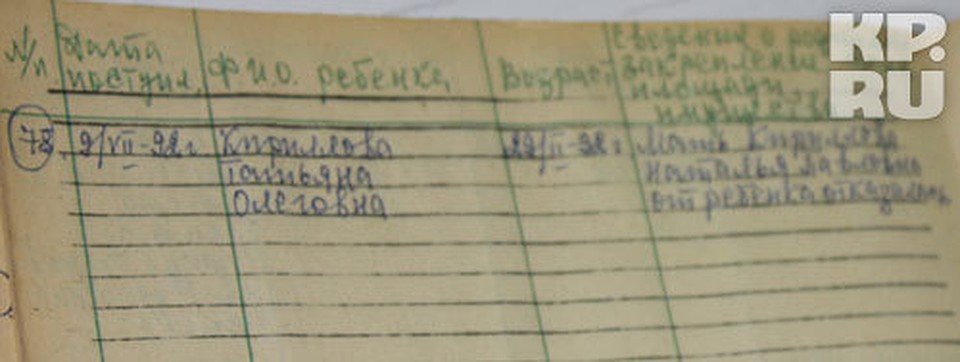 KP.
RU
№/п
Дата
поступл.
Ф.И.О. ребенка
Возраст
Сведения о
закреплении
площади
78
9/VII-92 г
Кириллова
Татьяна
Олеговна
Мать Кириллова
Наталья Павловна
от ребенка отказалась